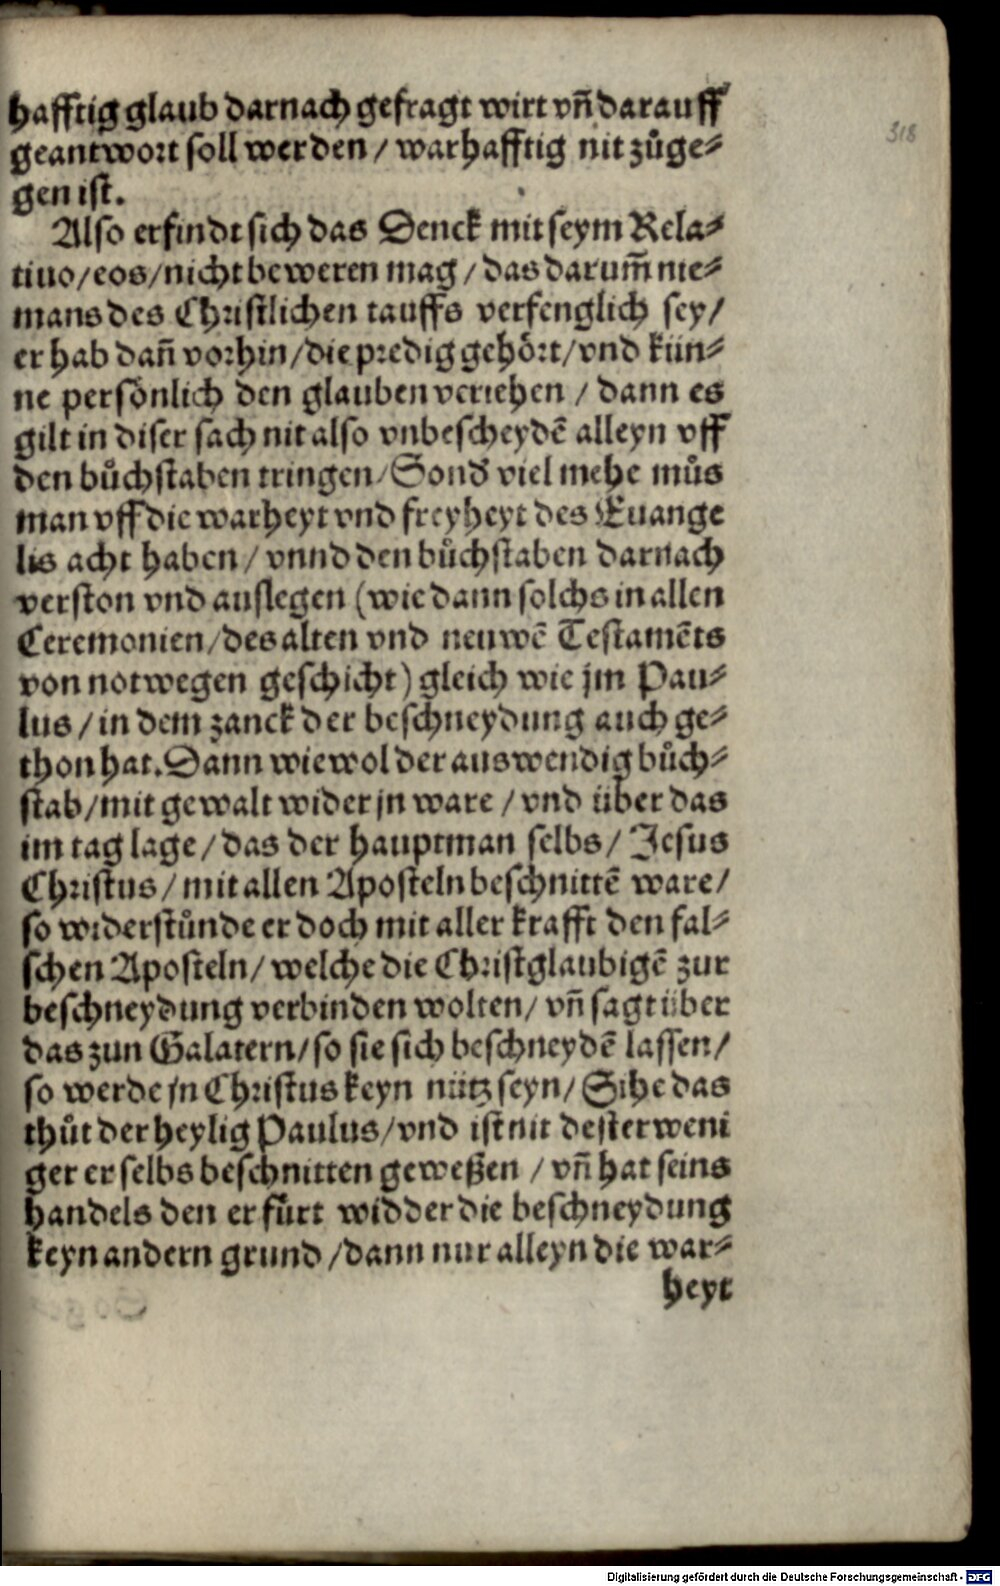 hafftig glaub darnach gefragt wirt vñ darauff
geantwort soll werden / warhafftig nit zůge⸗
gen ist.
318
Also erfindt sich das Denck mit seym Rela⸗
tiuo/eos/nicht beweren mag / das darum̃ nie⸗
mans des Christlichen tauffs verfenglich sey/
er hab dañ vorhin/die predig gehört/vnd kün⸗
ne persönlich den glauben veriehen / dann es
gilt in diser sach nit also vnbescheydē alleyn vff
den bůchstaben tringen/Sond' viel mehe můs
man vff die warheyt vnd freyheyt des Euange
lis acht haben / vnnd den bůchstaben darnach
verston vnd auslegen (wie dann solchs in allen
Ceremonien/des alten vnd neuwē Testamēts
von notwegen geschicht) gleich wie jm Pau⸗
lus / in dem zanck der beschneydung auch ge⸗
thon hat. Dann wiewol der auswendig bůch⸗
stab/mit gewalt wider jn ware / vnd über das
im tag lage / das der hauptman selbs / Jesus
Christus / mit allen Aposteln beschnittē ware/
so widerstůnde er doch mit aller krafft den fal⸗
schen Aposteln / welche die Christglaubigē zur
beschneydung verbinden wolten / vñ sagt über
das zun Galatern/so sie sich beschneydē lassen/
so werde jn Christus keyn nütz seyn/ Sihe das
thůt der heylig Paulus/vnd ist nit dester weni
ger er selbs beschnitten geweßen / vñ hat seins
handels den er fůrt widder die beschneydung
keyn andern grund / dann nur alleyn die war⸗
heyt
Digitalisierung gefördert durch die Deutsche Forschungsgemeinschaft - DFG